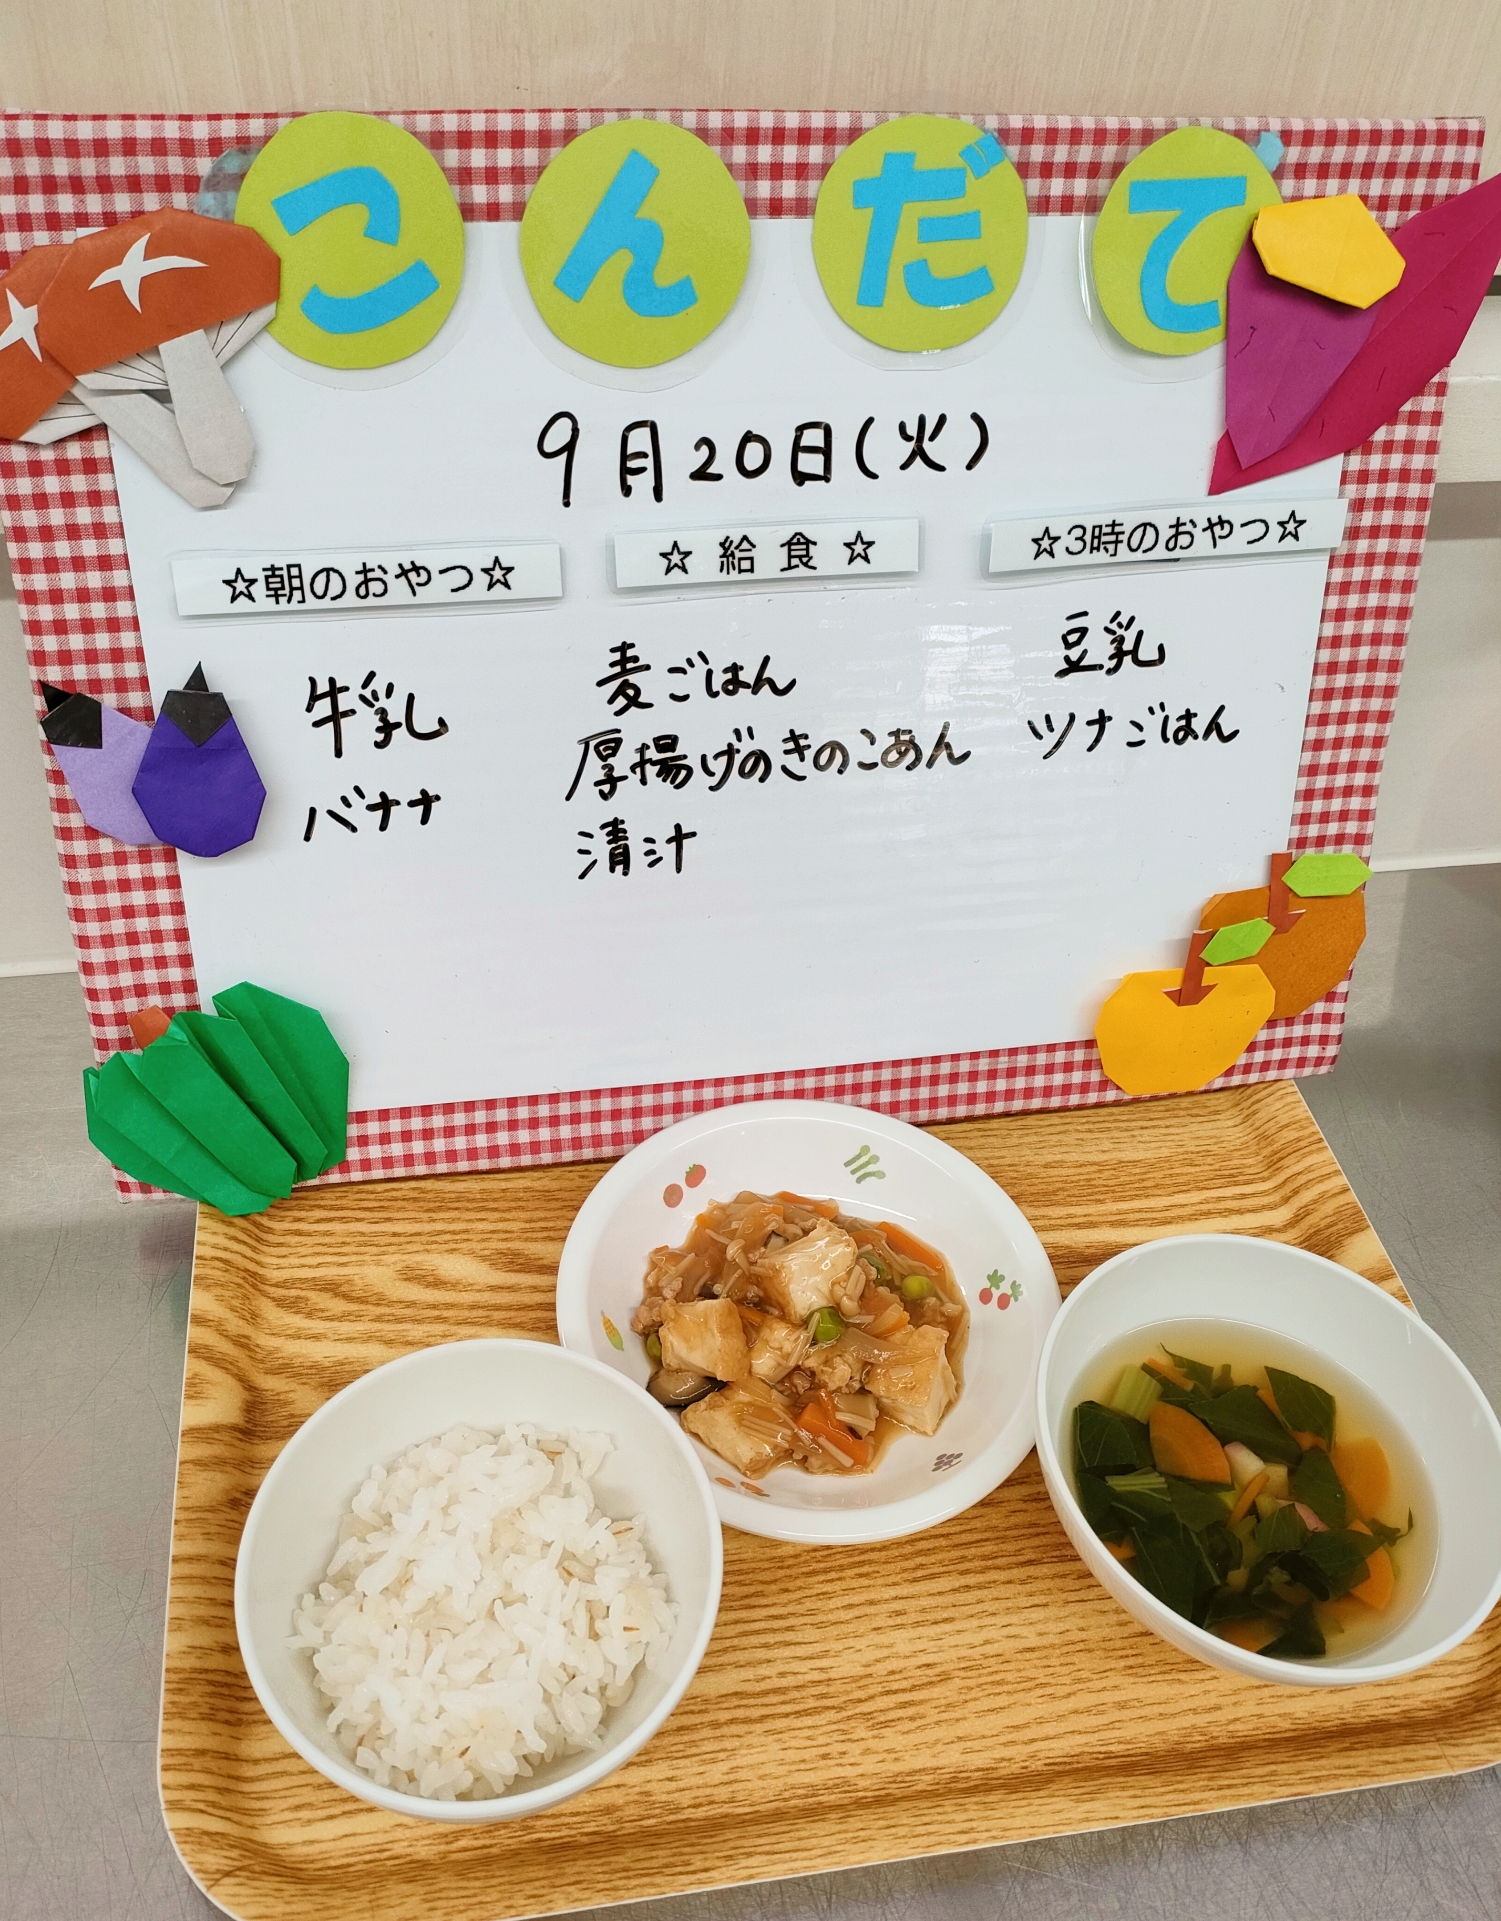 こんだて
9月20日(火)
☆朝のおやつ☆
牛乳
バナナ
☆給食☆
麦ごはん
厚揚げのきのこあん
清汁
☆3時のおやつ☆
豆乳
ツナごはん